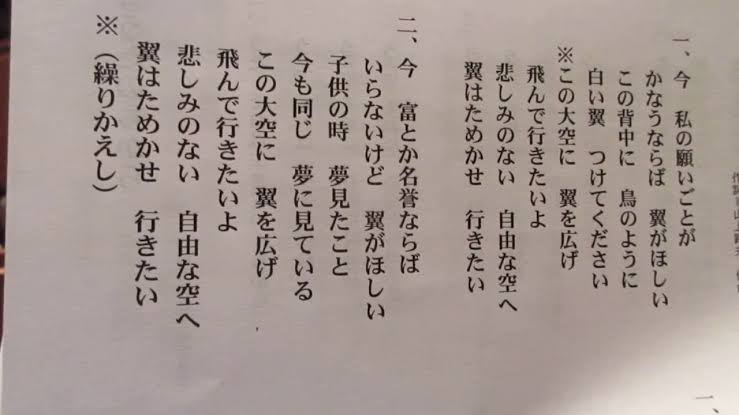 一、今　私の願いごとが
かなうならば　翼がほしい
この背中に　鳥のように
白い翼　つけてください
※この大空に　翼を広げ
飛んで行きたいよ
悲しみのない　自由な空へ
翼はためかせ　行きたい
二、今　富とか名誉ならば
いらないけど　翼がほしい
子供の時　夢見たこと
今も同じ　夢に見ている
この大空に　翼を広げ
飛んで行きたいよ
悲しみのない　自由な空へ
翼はためかせ　行きたい
※（繰りかえし）
一、